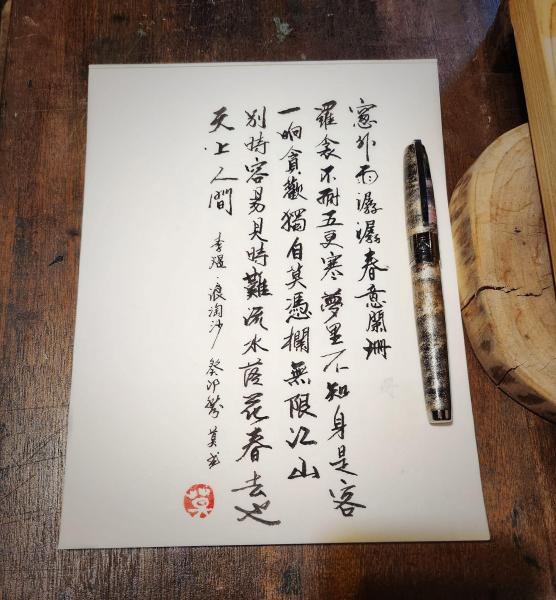 窓外雨潺潺春意闌珊
羅衾不耐五更寒夢里不知身是客
一晌貪歡獨自莫憑欄無限江山
別時容易見時難流水落花春去也
天上人間
李煜·浪淘沙 癸卯 莫
莫